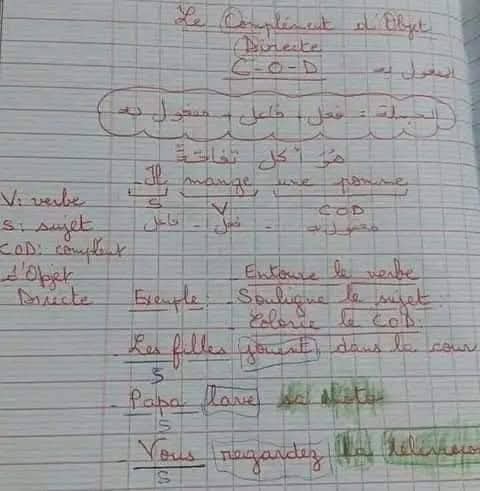 Le Complément d'Objet
Directe
C-O-D المفعول به
الجملة = فعل + فاعل + مفعول به
هو أكل تفاحة
Il mange une pomme
S V COD
فاعل - فعل - مفعول به
V: verbe
S: sujet
COD: complment
d'Objet
Directe
Entoure le verbe
Exemple: Souligne le sujet
Colorie le COD.
- Les filles jouent dans la cour
S
- Papa lave sa moto
S
- Vous regardez la télévision
S